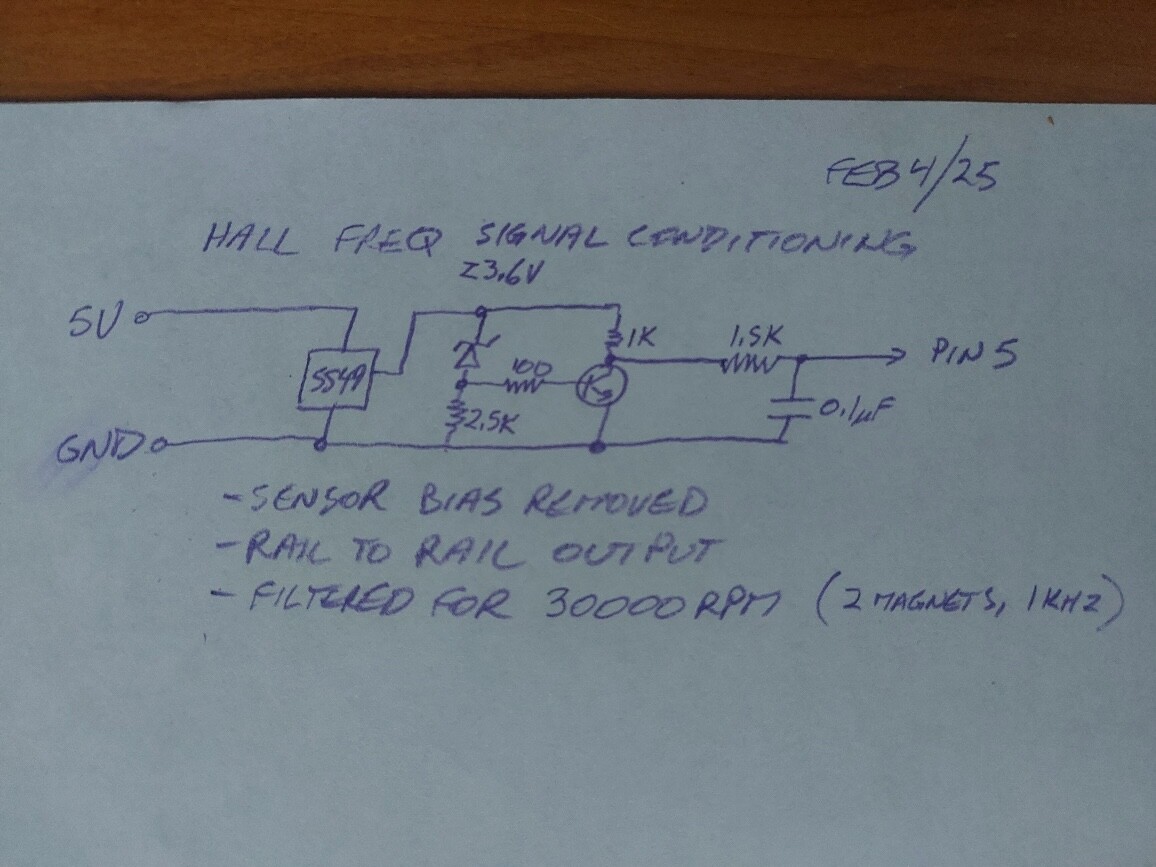 FEB 4/25
HALL FREQ SIGNAL CONDITIONING
Z3.6V
5V
1K
1.5K
PIN 5
SS49
100
0.1µF
2.5K
GND
- SENSOR BIAS REMOVED
- RAIL TO RAIL OUTPUT
- FILTERED FOR 30000 RPM (2 MAGNETS, 1KHZ)